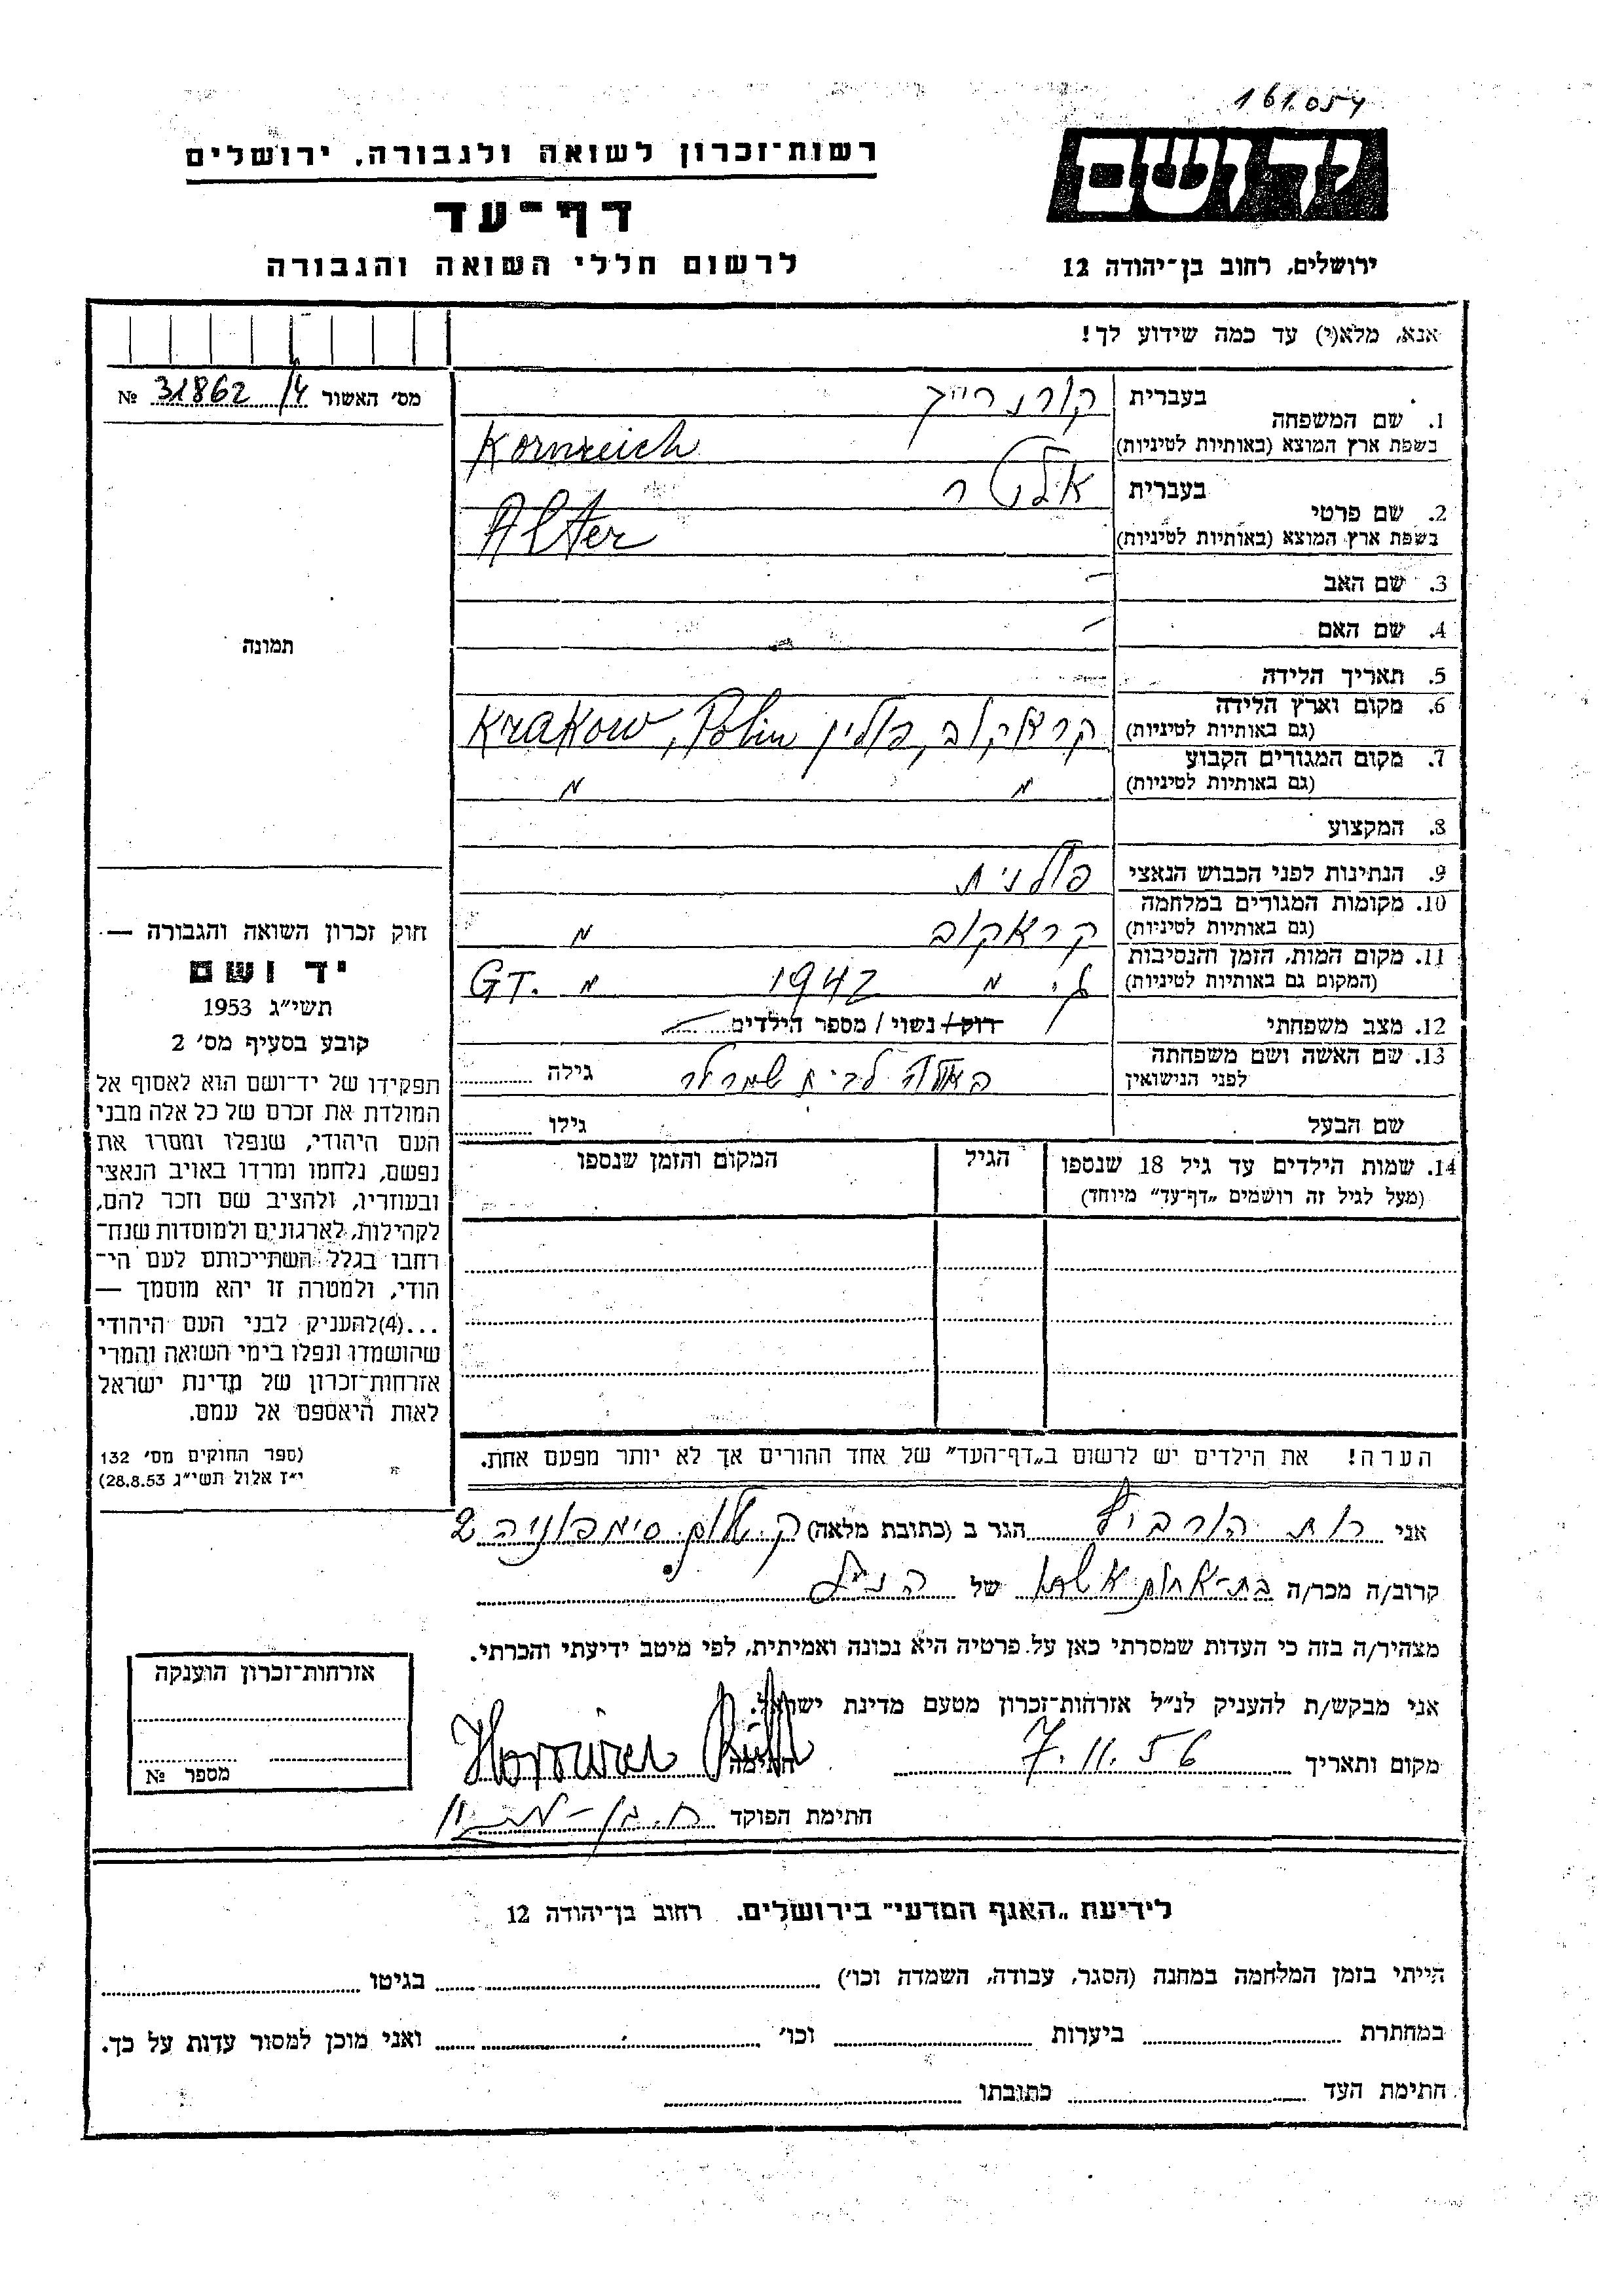 161.054
יד ושם
רשות־זכרון לשואה ולגבורה, ירושלים
דף־עד
לרשום חללי השואה והגבורה
ירושלים, רחוב בן־יהודה 12
אנא, מלא(י) עד כמה שידוע לך!
מס' האשור 31862/4 №
1. שם המשפחה
בעברית קורנרייך
בשפת ארץ המוצא (באותיות לטיניות) Kornreich
2. שם פרטי
בעברית אלטר
בשפת ארץ המוצא (באותיות לטיניות) Alter
3. שם האב –
4. שם האם –
5. תאריך הלידה
6. מקום וארץ הלידה
(גם באותיות לטיניות) קראקוב, פולין Krakow, Polin
7. מקום המגורים הקבוע
(גם באותיות לטיניות) " "
8. המקצוע
9. הנתינות לפני הכבוש הנאצי פולנית
10. מקומות המגורים במלחמה
(גם באותיות לטיניות) קראקוב "
11. מקום המות, הזמן והנסיבות
(המקום גם באותיות לטיניות) " 1942 " GT.
12. מצב משפחתי רוק / נשוי / מספר הילדים
13. שם האשה ושם משפחתה
לפני הנישואין לבית גילה
שם הבעל גילו
14. שמות הילדים עד גיל 18 שנספו
(מעל לגיל זה רושמים „דף־עד" מיוחד)
הגיל
המקום והזמן שנספו
הערה! את הילדים יש לרשום ב„דף־העד" של אחד ההורים אך לא יותר מפעם אחת.
תמונה
חוק זכרון השואה והגבורה —
יד ושם
תשי"ג 1953
קובע בסעיף מס' 2
תפקידו של יד־ושם הוא לאסוף אל
המולדת את זכרם של כל אלה מבני
העם היהודי, שנפלו ומסרו את
נפשם, נלחמו ומרדו באויב הנאצי
ובעוזריו, ולהציב שם וזכר להם,
לקהילות, לארגונים ולמוסדות שנח־
רחבו בגלל השתייכותם לעם הי־
הודי, ולמטרה זו יהא מוסמך —
...(4) להעניק לבני העם היהודי
שהושמדו ונפלו בימי השואה והמרי
אזרחות־זכרון של מדינת ישראל
לאות היאספם אל עמם.
(ספר החוקים מס' 132
י"ז אלול תשי"ג 28.8.53)
אני רות הורביץ הגר ב (כתובת מלאה) ק. סימפוניה 2
קרוב/ה מכר/ה בת-אחות של הנ"ל
מצהיר/ה בזה כי העדות שמסרתי כאן על פרטיה היא נכונה ואמיתית, לפי מיטב ידיעתי והכרתי.
אני מבקש/ת להעניק לנ"ל אזרחות־זכרון מטעם מדינת ישראל.
מקום ותאריך 7.11.56 חתימה
חתימת הפוקד
אזרחות־זכרון הוענקה
מספר №
לידיעת „האגף המדעי" בירושלים. רחוב בן־יהודה 12
הייתי בזמן המלחמה במחנה (הסגר, עבודה, השמדה וכו') בגיטו
במחתרת ביערות וכו' ואני מוכן למסור עדות על כך.
חתימת העד כתובתו